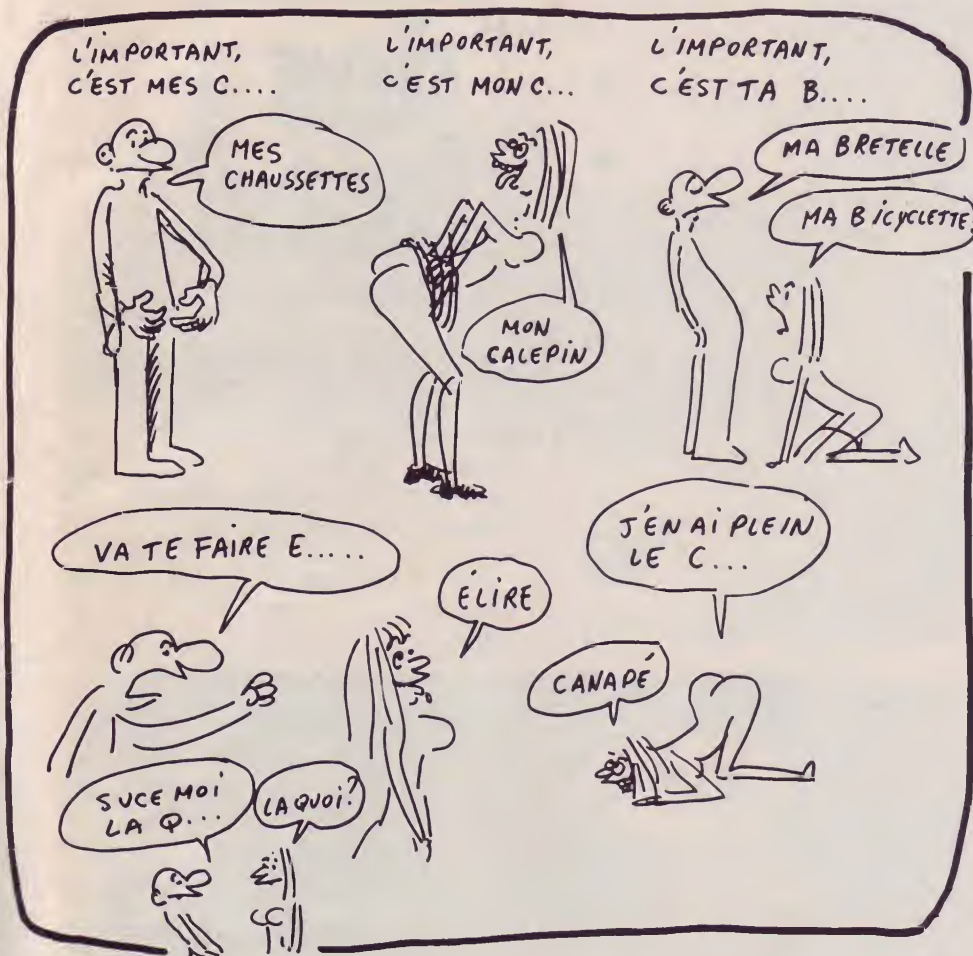 L'IMPORTANT,
C'EST MES C....
MES
CHAUSSETTES
L'IMPORTANT,
C'EST MON C...
MON
CALEPIN
L'IMPORTANT,
C'EST TA B....
MA BRETELLE
MA BICYCLETTE
VA TE FAIRE E.....
ÉLIRE
J'EN AI PLEIN
LE C...
CANAPÉ
SUCE MOI
LA Q...
LA QUOI?